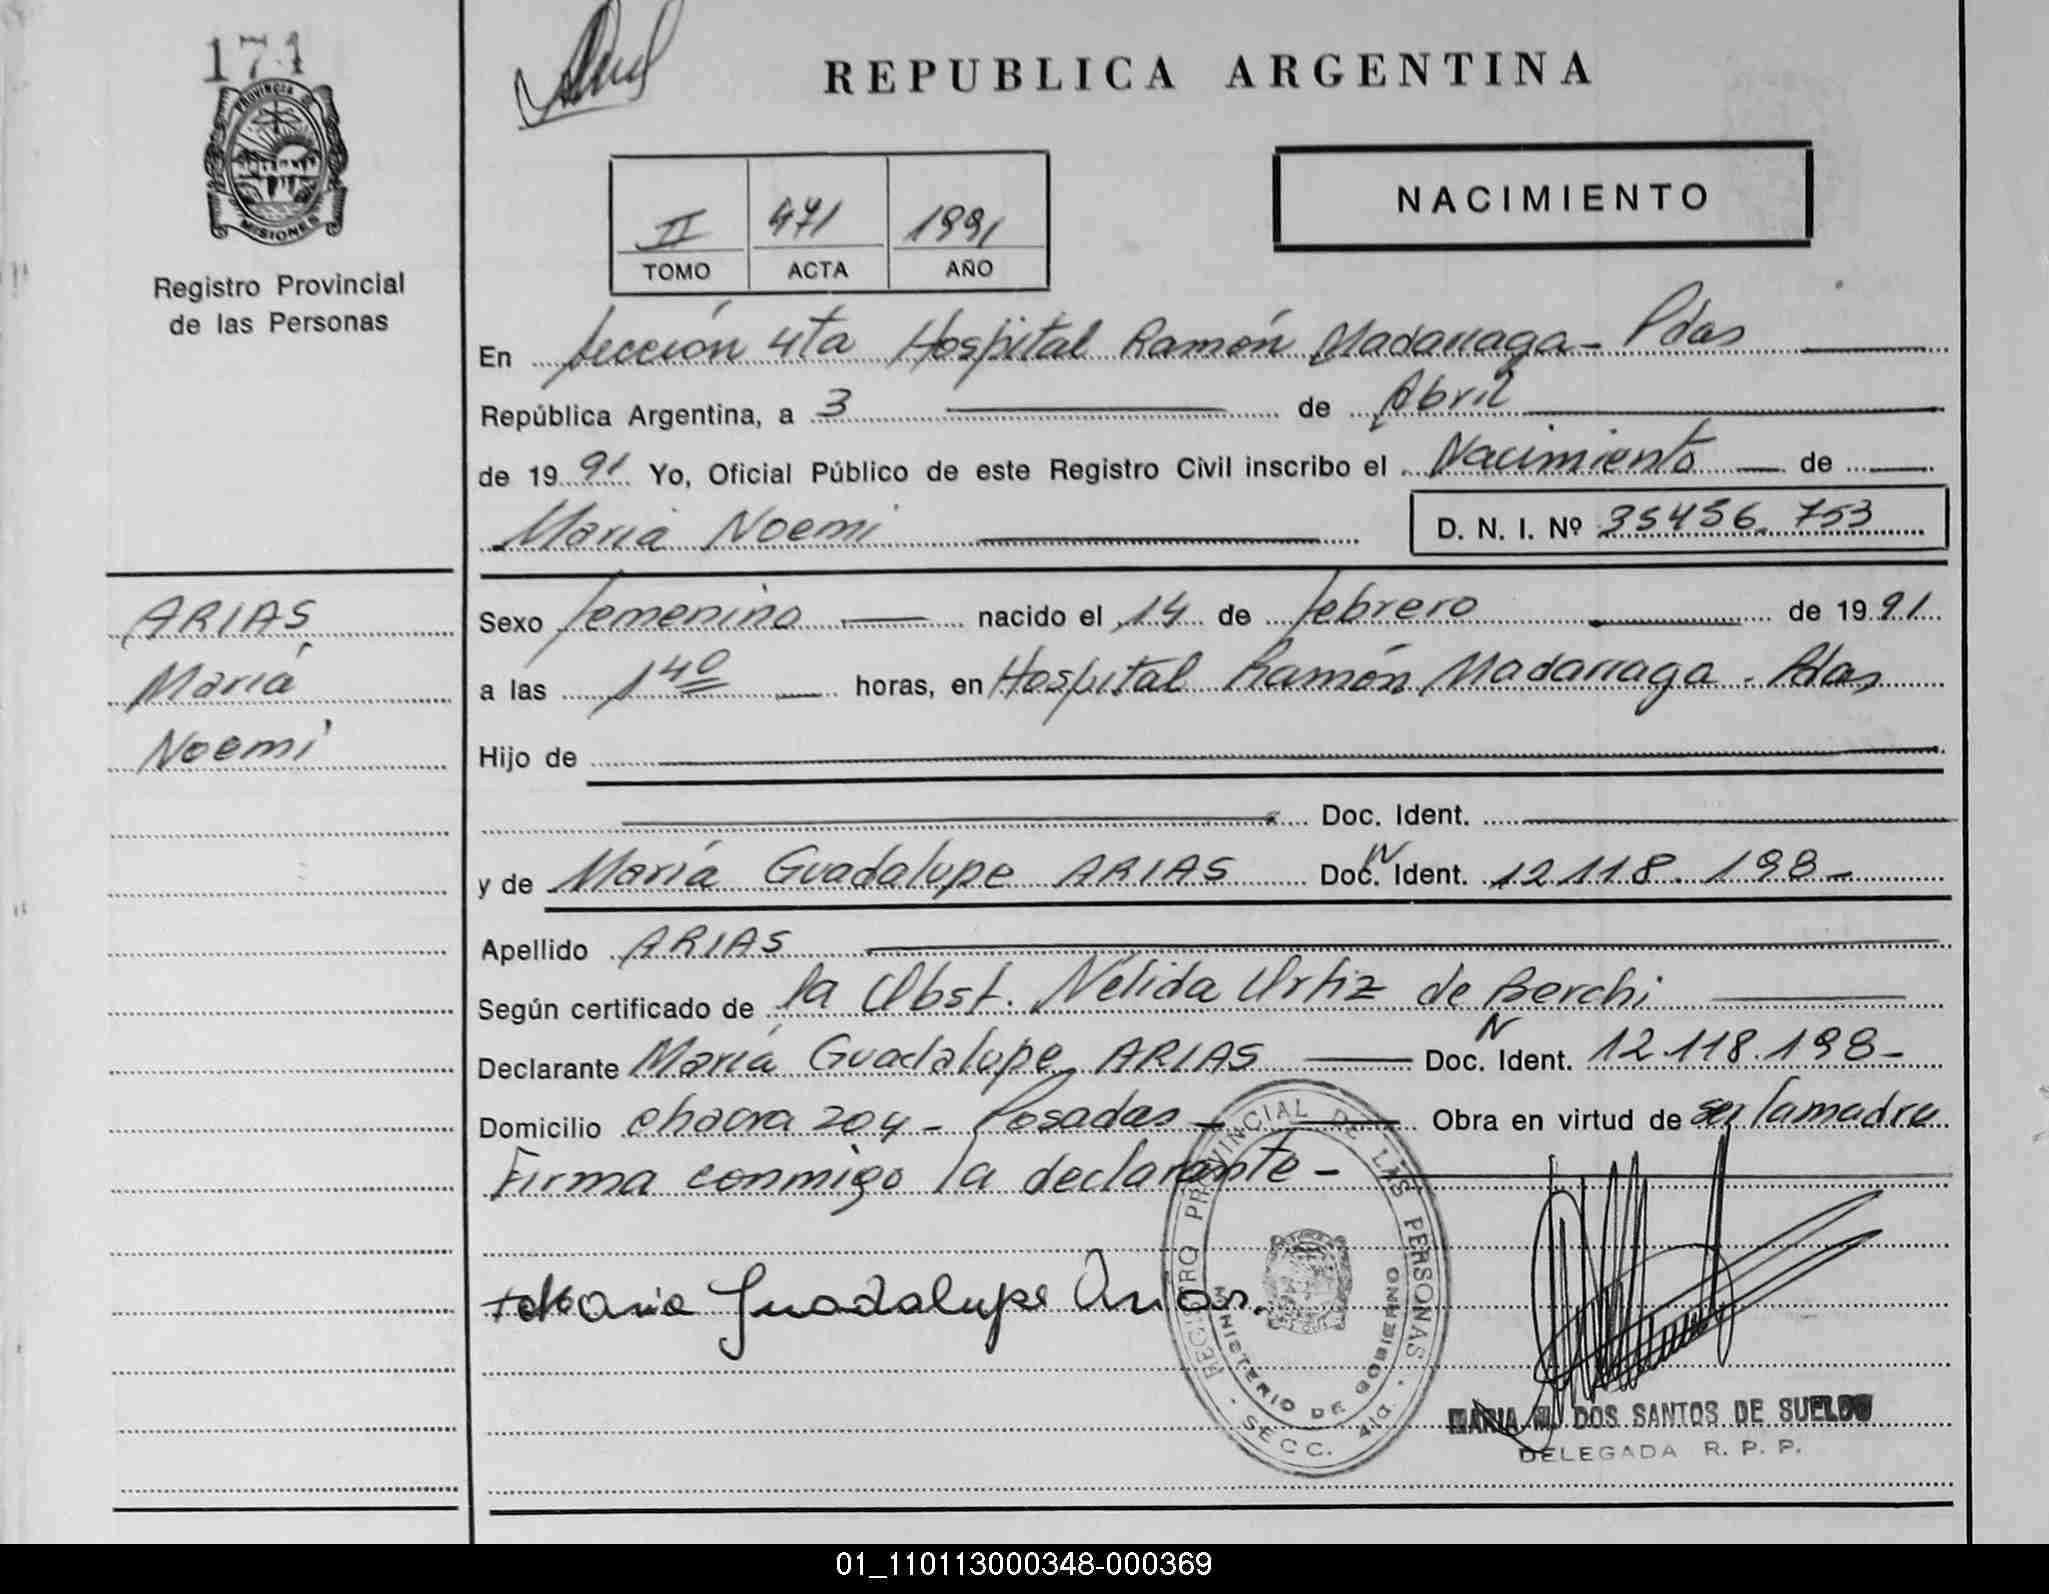 171
PROVINCIA DE
MISIONES
Registro Provincial
de las Personas
REPUBLICA ARGENTINA
NACIMIENTO
II 471 1991
TOMO ACTA AÑO
En Sección 4ta Hospital Ramón Madariaga - Pdas
República Argentina, a 3 de Abril
de 19 91 Yo, Oficial Público de este Registro Civil inscribo el Nacimiento de
María Noemi
D. N. I. Nº 35456.753
ARIAS
María
Noemí
Sexo femenino nacido el 14 de febrero de 19 91
a las 1 40 horas, en Hospital Ramón Madariaga - Pdas
Hijo de
Doc. Ident.
y de María Guadalupe ARIAS Doc. N Ident. 12.118.198-
Apellido ARIAS
Según certificado de la Obst. Nélida Ortiz de Berchi
Declarante María Guadalupe ARIAS Doc. N Ident. 12.118.198-
Domicilio chacra 204 - Posadas - Obra en virtud de ser la madre
Firma conmigo la declarante -
Maria Guadalupe Arias.
REGISTRO PROVINCIAL DE LAS PERSONAS
MINISTERIO DE GOBIERNO
SECC. 4ta.
MARIA M. DOS SANTOS DE SUELDO
DELEGADA R. P. P.
01_110113000348-000369